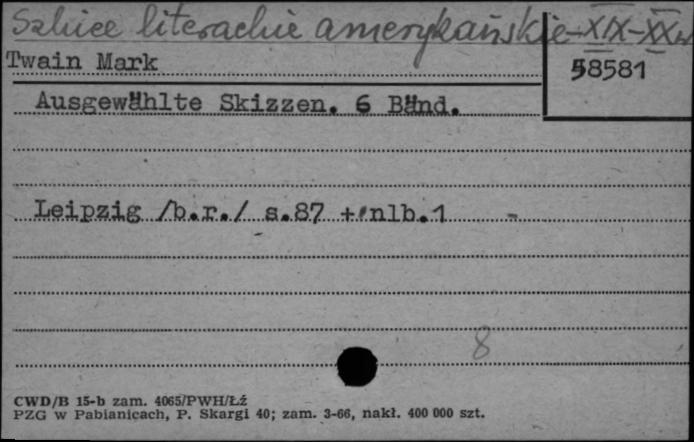 Szkice literackie amerykańskie-XIX-XX w
Twain Mark
58581
Ausgewählte Skizzen. 6 Bänd.
Leipzig /b.r./ s.87 + nlb.1 -
8
CWD/B 15-b zam. 4065/PWH/Łź
PZG w Pabianicach, P. Skargi 40; zam. 3-66, nakł. 400 000 szt.